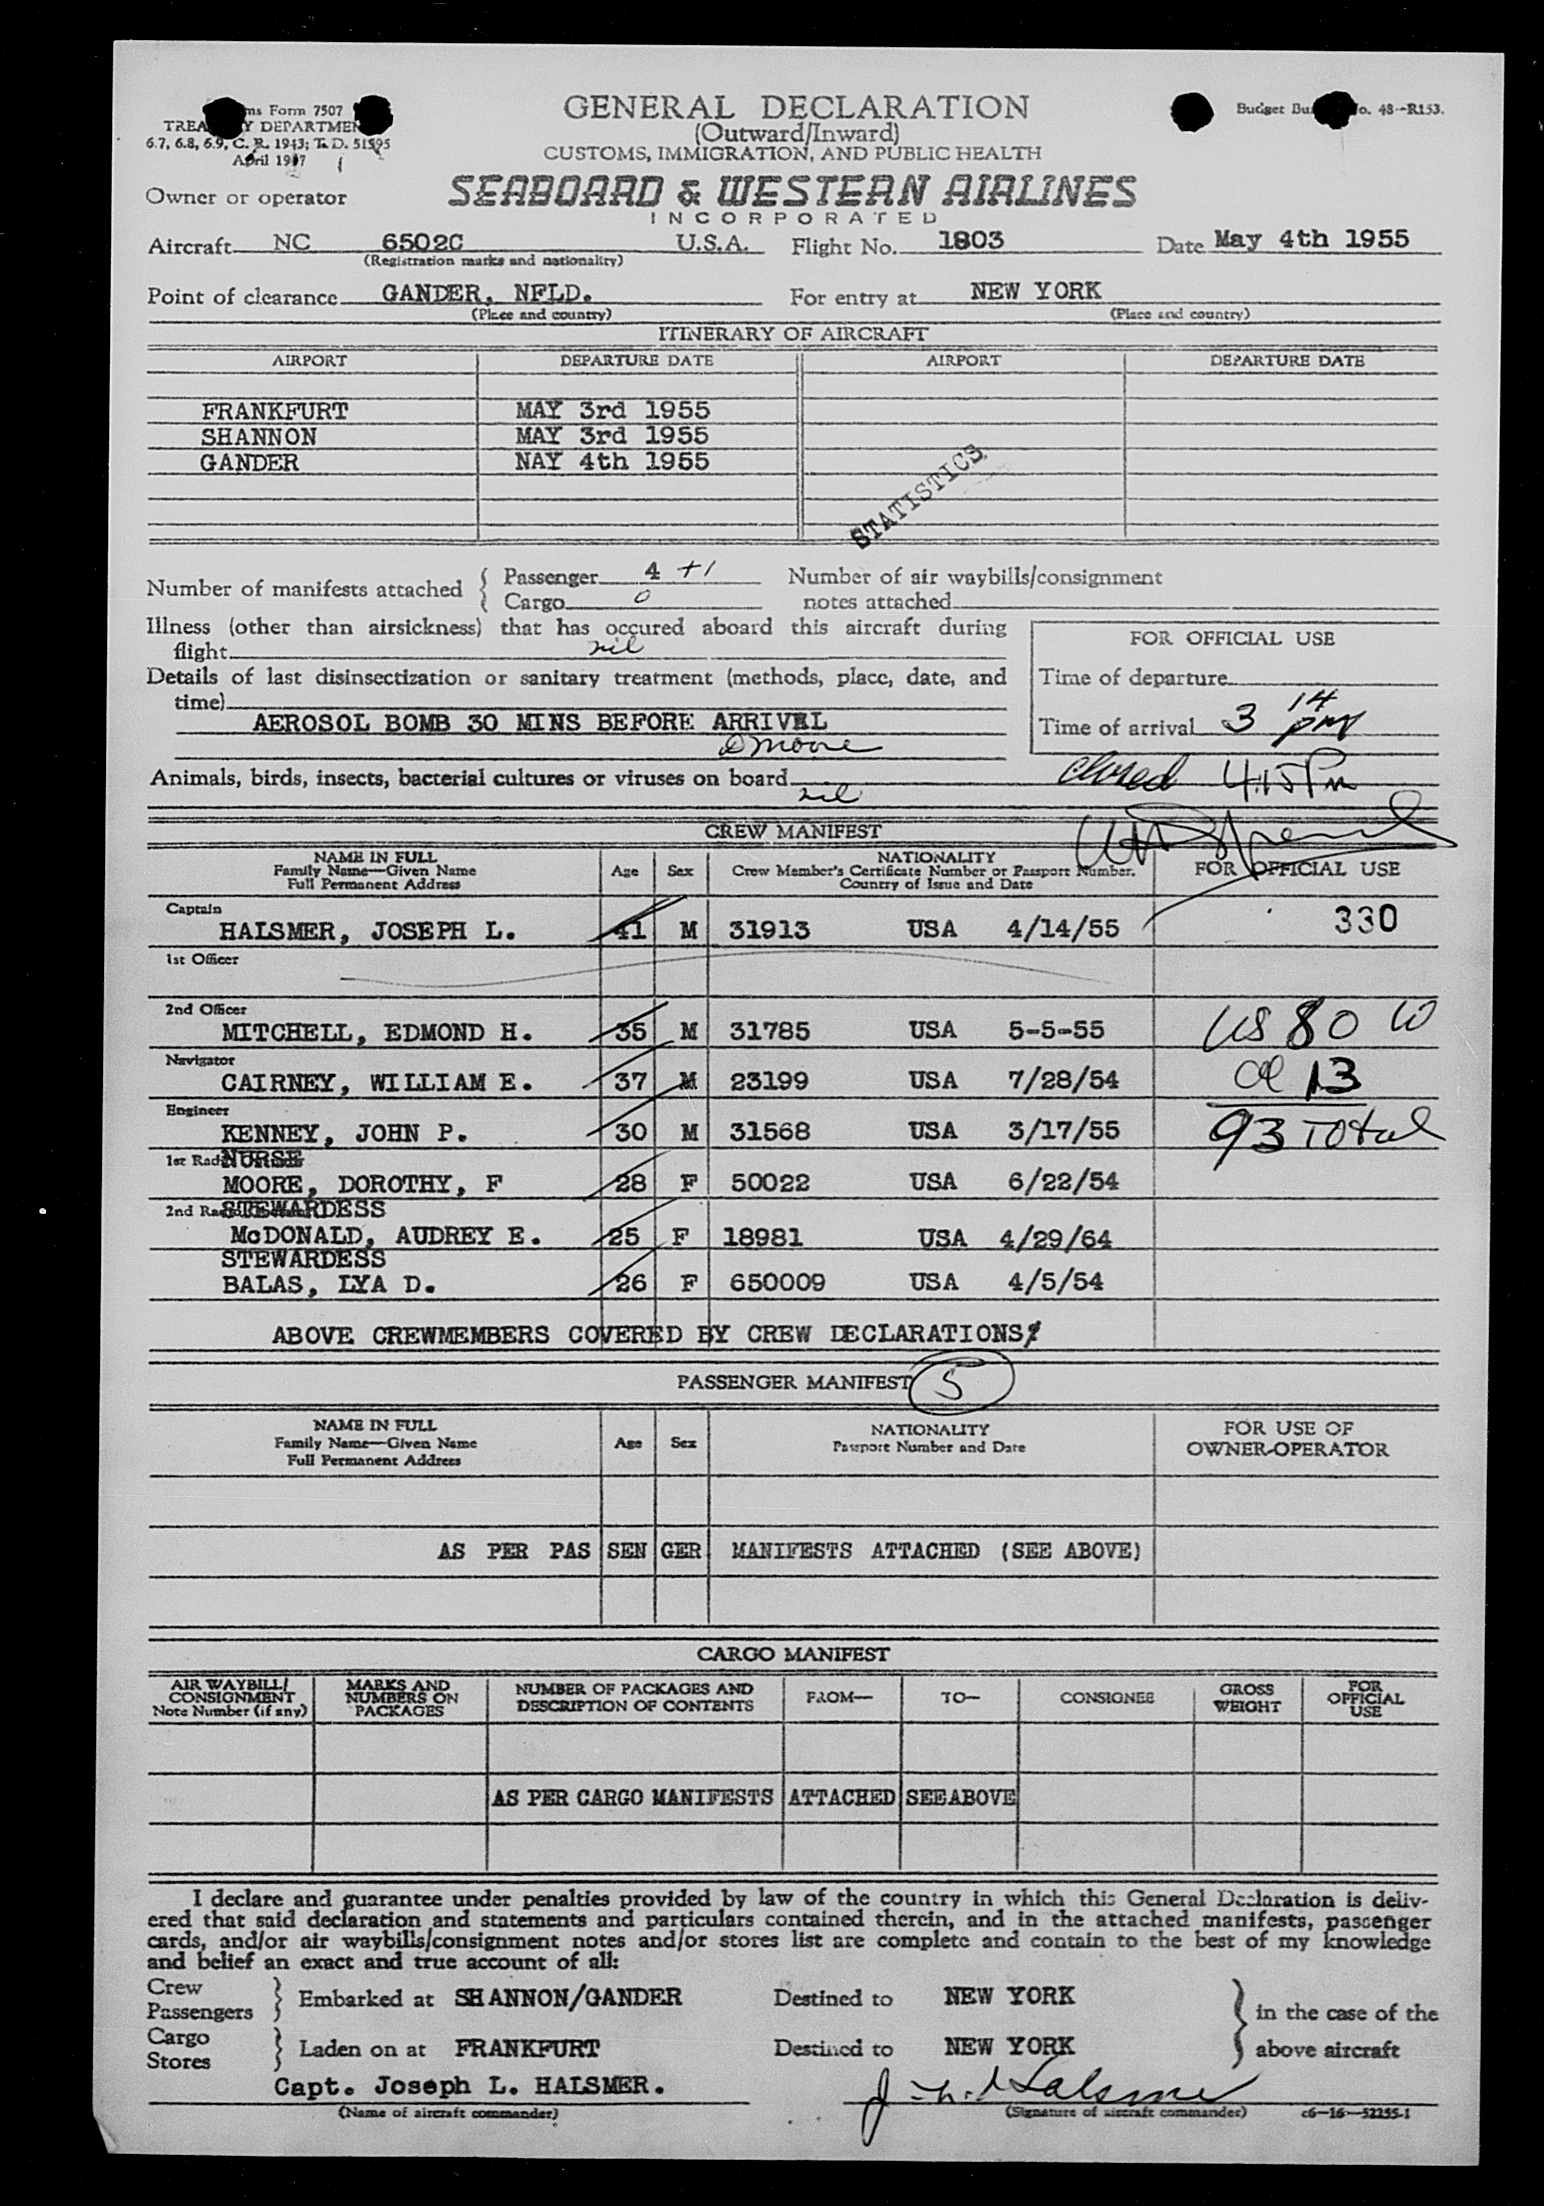 ms Form 7507
TREA Y DEPARTMEN
6.7, 6.8, 6.9, C. R. 1943; T. D. 51595
April 1947
GENERAL DECLARATION
(Outward/Inward)
CUSTOMS, IMMIGRATION, AND PUBLIC HEALTH
Budget Bu No. 48-R153.
Owner or operator
SEABOARD & WESTERN AIRLINES
INCORPORATED
Aircraft NC 6502C U.S.A. Flight No. 1803 Date May 4th 1955
(Registration marks and nationality)
Point of clearance GANDER, NFLD. For entry at NEW YORK
(Place and country) (Place and country)
ITINERARY OF AIRCRAFT
AIRPORT DEPARTURE DATE AIRPORT DEPARTURE DATE
FRANKFURT MAY 3rd 1955
SHANNON MAY 3rd 1955
GANDER NAY 4th 1955
STATISTICS
Number of manifests attached { Passenger 4 +1 Number of air waybills/consignment
Cargo 0 notes attached
Illness (other than airsickness) that has occured aboard this aircraft during
flight nil
FOR OFFICIAL USE
Details of last disinsectization or sanitary treatment (methods, place, date, and
time)
Time of departure
AEROSOL BOMB 30 MINS BEFORE ARRIVAL
Time of arrival 3 14 pm
D Moore
Animals, birds, insects, bacterial cultures or viruses on board nil
closed 4:15 Pm
CREW MANIFEST
NAME IN FULL
Family Name—Given Name
Full Permanent Address
Age Sex
NATIONALITY
Crew Member's Certificate Number or Passport Number.
Country of Issue and Date
FOR OFFICIAL USE
Captain
HALSMER, JOSEPH L. 41 M 31913 USA 4/14/55 330
1st Officer
2nd Officer
MITCHELL, EDMOND H. 35 M 31785 USA 5-5-55 US 80 W
Navigator
CAIRNEY, WILLIAM E. 37 M 23199 USA 7/28/54 al 13
Engineer
KENNEY, JOHN P. 30 M 31568 USA 3/17/55 93 Total
1st Rad NURSE
MOORE, DOROTHY, F 28 F 50022 USA 6/22/54
2nd Ra STEWARDESS
McDONALD, AUDREY E. 25 F 18981 USA 4/29/64
STEWARDESS
BALAS, LYA D. 26 F 650009 USA 4/5/54
ABOVE CREWMEMBERS COVERED BY CREW DECLARATIONS
PASSENGER MANIFEST 5
NAME IN FULL
Family Name—Given Name
Full Permanent Address
Age Sex
NATIONALITY
Passport Number and Date
FOR USE OF
OWNER-OPERATOR
AS PER PAS SEN GER MANIFESTS ATTACHED (SEE ABOVE)
CARGO MANIFEST
AIR WAYBILL/
CONSIGNMENT
Note Number (if any)
MARKS AND
NUMBERS ON
PACKAGES
NUMBER OF PACKAGES AND
DESCRIPTION OF CONTENTS
FROM— TO— CONSIGNEE
GROSS
WEIGHT
FOR
OFFICIAL
USE
AS PER CARGO MANIFESTS ATTACHED SEEABOVE
I declare and guarantee under penalties provided by law of the country in which this General Declaration is deliv-
ered that said declaration and statements and particulars contained therein, and in the attached manifests, passenger
cards, and/or air waybills/consignment notes and/or stores list are complete and contain to the best of my knowledge
and belief an exact and true account of all:
Crew
Passengers } Embarked at SHANNON/GANDER Destined to NEW YORK } in the case of the
Cargo
Stores } Laden on at FRANKFURT Destined to NEW YORK above aircraft
Capt. Joseph L. HALSMER. J. L. Halsmer
(Name of aircraft commander) (Signature of aircraft commander) c6-16-52255-1